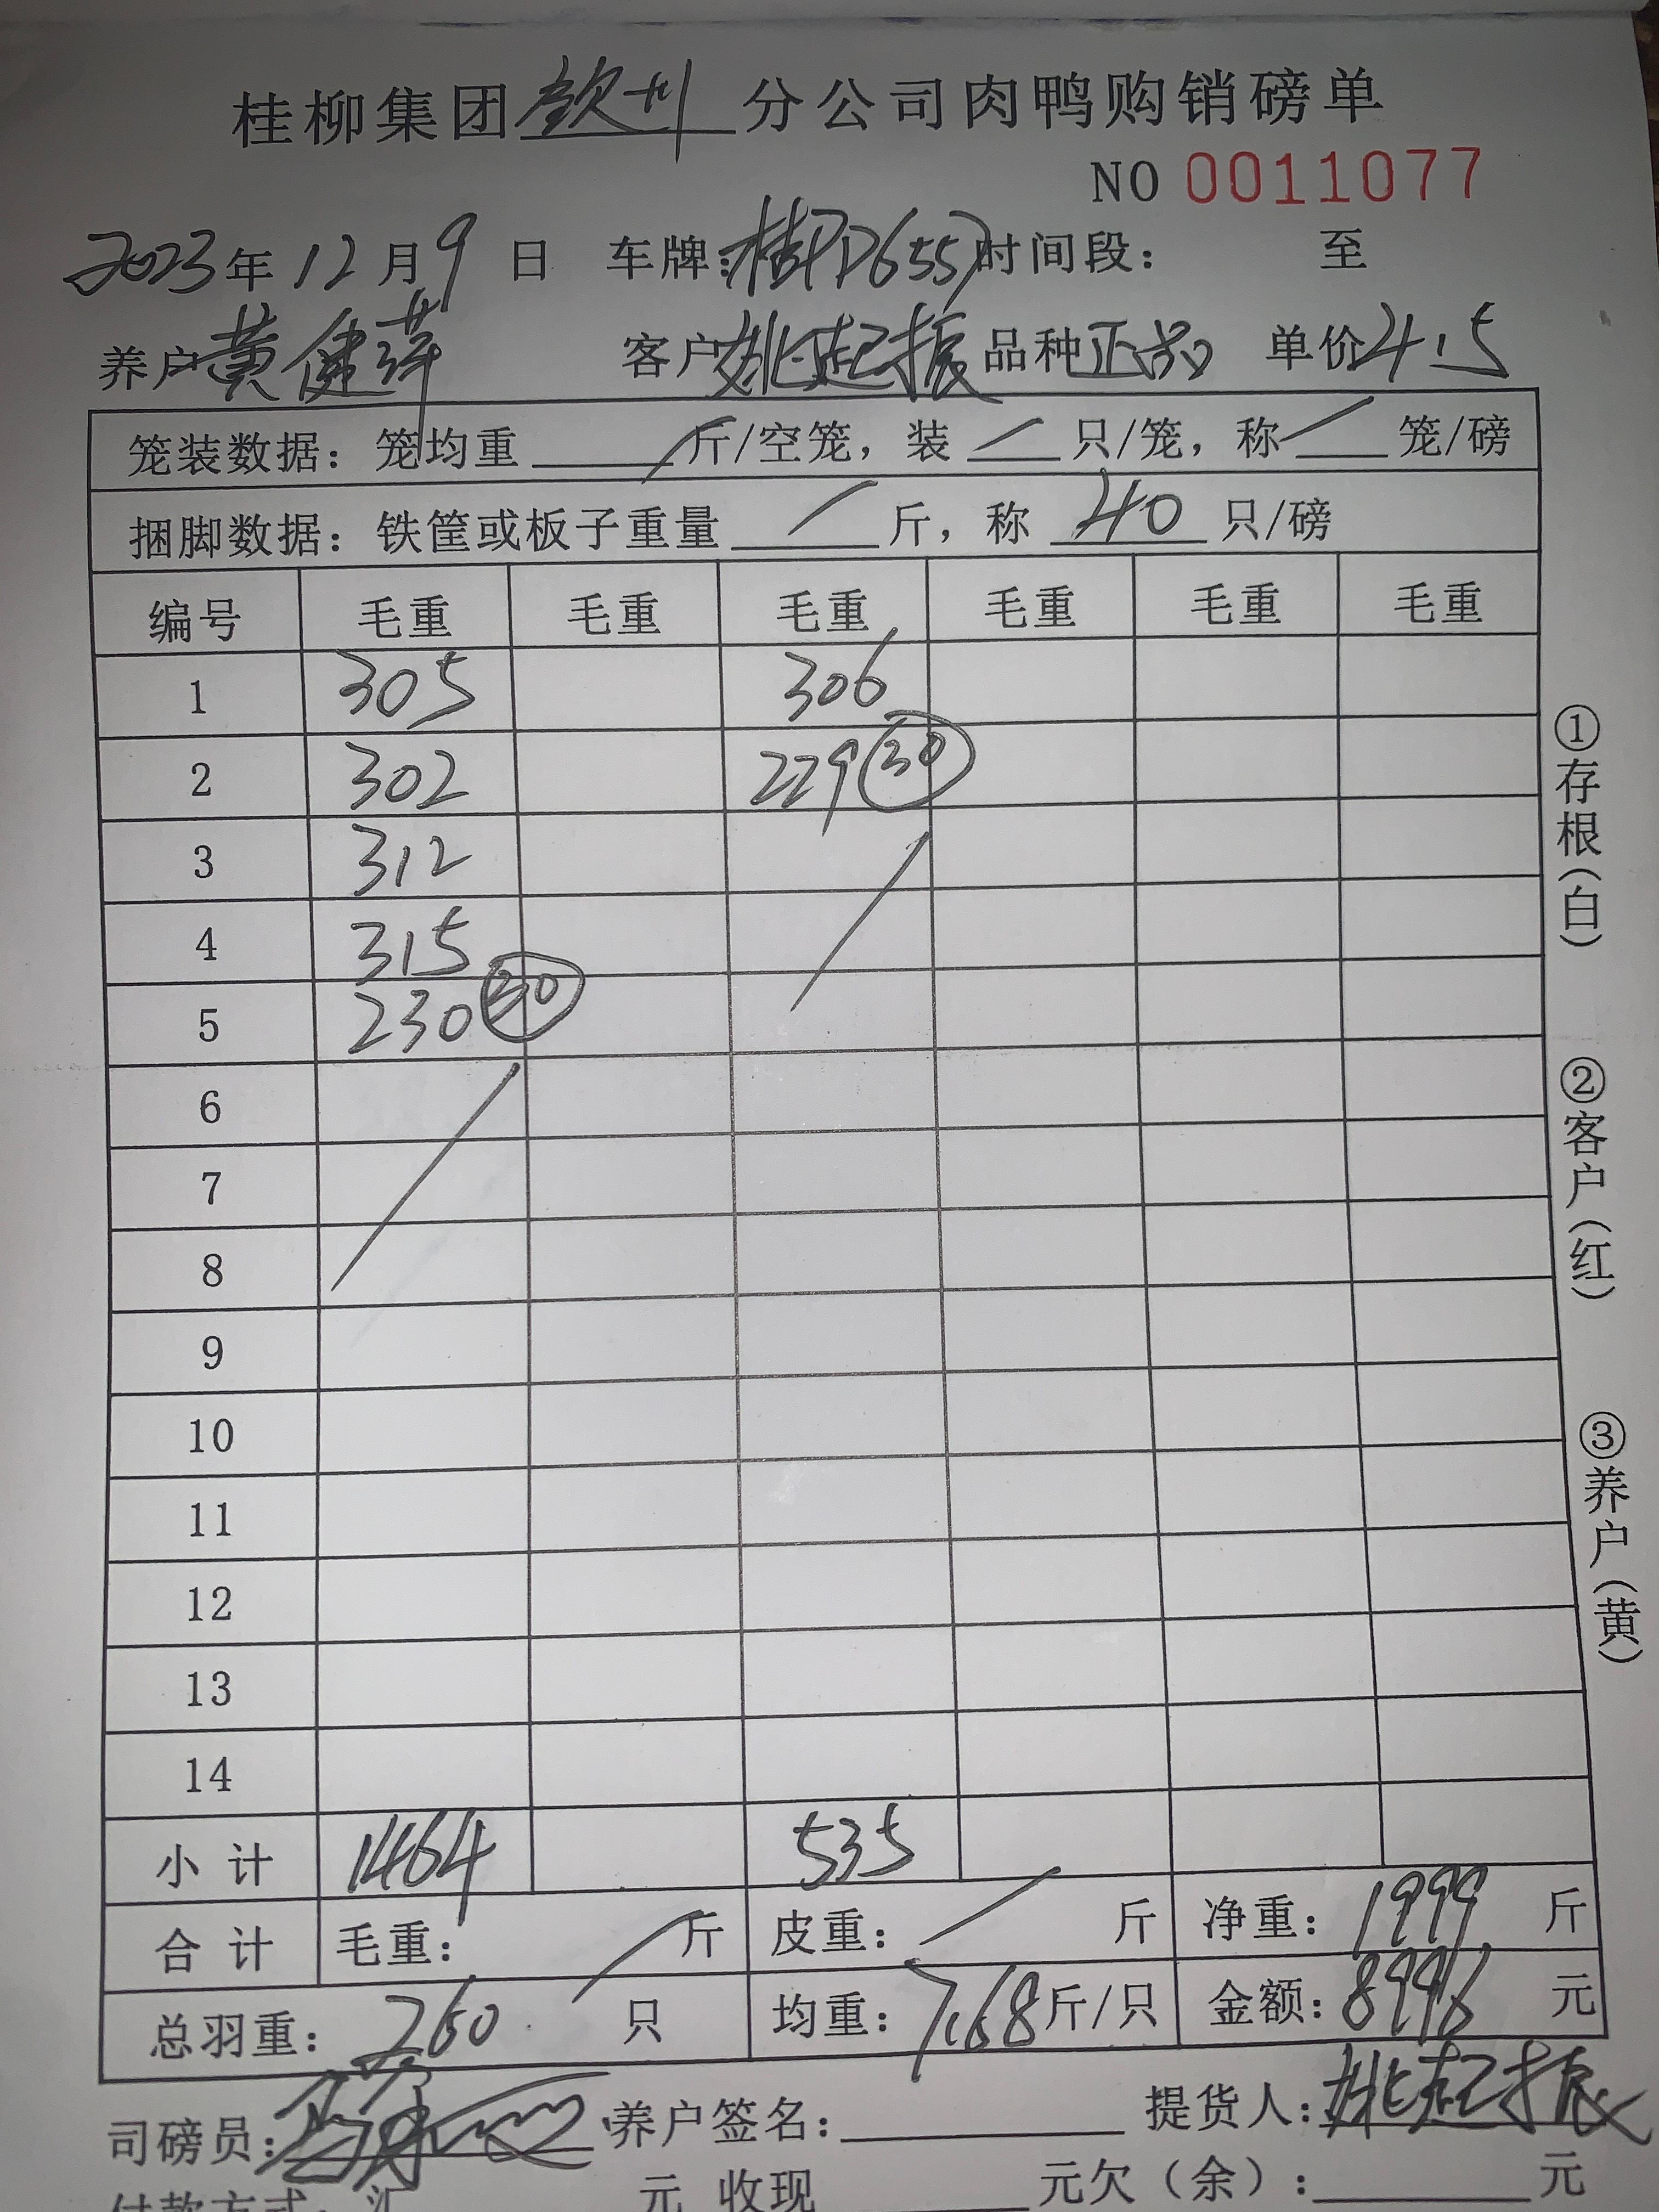 桂柳集团钦州分公司肉鸭购销磅单
NO 0011077
2023年12月9日 车牌:桂PD6557时间段: 至
养户黄健萍 客户姚起振 品种正品 单价4.5
笼装数据:笼均重 / 斤/空笼,装 / 只/笼,称 / 笼/磅
捆脚数据:铁筐或板子重量 / 斤,称 40 只/磅
编号 毛重 毛重 毛重 毛重 毛重 毛重
1 305 306
2 302 229 30
3 312
4 315
5 230 30
6
7
8
9
10
11
12
13
14
小计 1464 535
合计 毛重: / 斤 皮重: / 斤 净重:1999斤
总羽重:260 只 均重:7.68斤/只 金额:8996元
司磅员: 养户签名: 提货人:姚起振
付款方式:汇 元 收现 元欠(余): 元
①存根(白)
②客户(红)
③养户(黄)